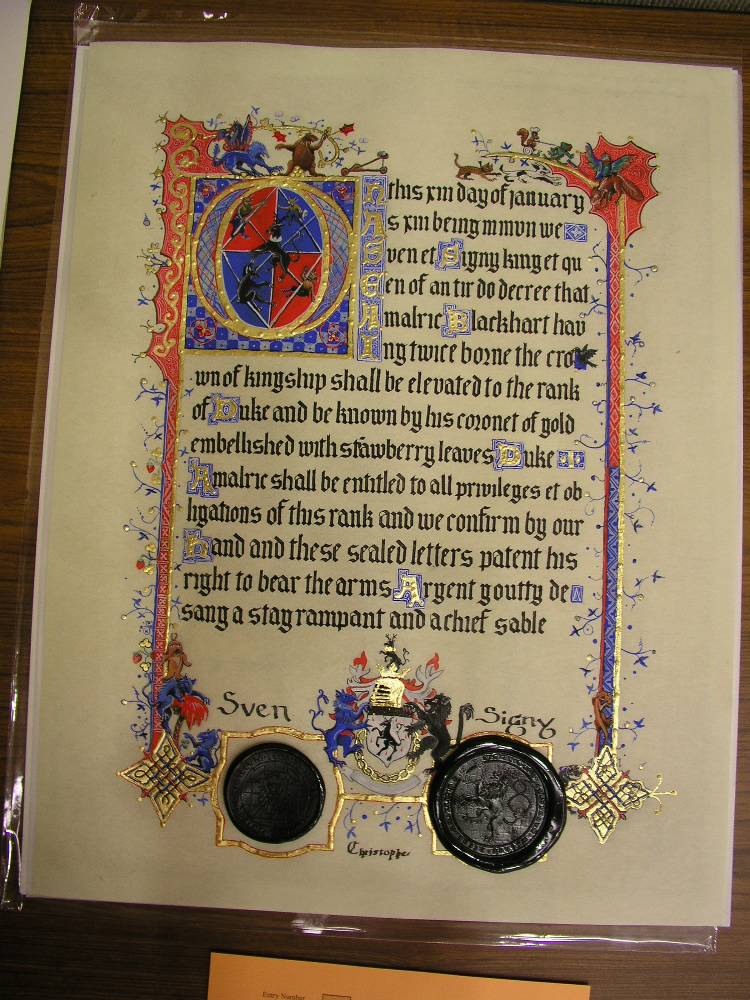 On this xiii day of january
As xiii being mmvii we
Sven et Signy king et qu
Een of an tir do decree that
Amalric Blackhart hav
Ing twice borne the cro
wn of kingship shall be elevated to the rank
of Duke and be known by his coronet of gold
embellished with stawberry leaves Duke
Amalric shall be entitled to all privileges et ob
ligations of this rank and we confirm by our
hand and these sealed letters patent his
right to bear the arms Argent goutty de
sang a stag rampant and a chief sable
Sven Signy
Christopher
Entry Number